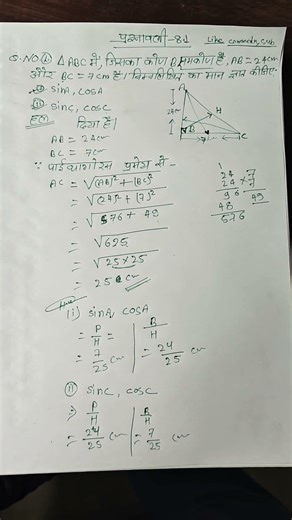 प्रश्नावली-8.1
Like comments, sub
Q.NO.① △ABC में, जिसका कोण B समकोण है, AB = 24cm
और BC = 7cm है। निम्नलिखित का मान ज्ञात कीजिए-
① sinA, cosA
② sinC, cosC
A
24cm
H
B
7
C
हल
दिया है।
AB = 24cm
BC = 7cm
∵ पाइथागोरस प्रमेय से-
AC = √(AB)² + (BC)²
= √(24)² + (7)²
= √576 + 49
= √625
= √25×25
= 25 cm
1
24
24 × 7
7
96
49
48
576
(i) sinA, cosA
= P/H
= B/H
= 7/25 cm
= 24/25 cm
(ii) sinC, cosC
= P/H
B/H
= 24/25 cm
= 7/25 cm